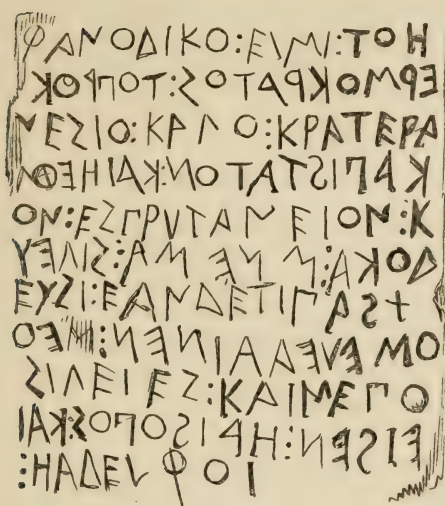 ΦΑΝΟΔΙΚΟ:ΕΙΜΙ:ΤΟΗ
ΕΡΜΟΚΡΑΤΟΣ:ΤΟΠΡΟΚ
ΝΕΣΙΟ:ΚΑΓΟ:ΚΡΑΤΕΡΑ
ΚΑΠΙΣΤΑΤΟΝ:ΚΑΙΗΕΘΜ
ΟΝ:ΕΣΠΡΥΤΑΝΕΙΟΝ:Κ
ΔΟΚΑ:ΜΝΕΜΑ:ΣΙΛΕΥ
ΕΥΣΙ:ΕΑΝΔΕΤΙΠΑΣ+
ΟΜΕΛΕΔΑΙΝΕΝ:ΜΕΟ
ΣΙΛΕΙΕΣ:ΚΑΙΜΕΠΟ
ΕΙΣΕΝ:ΗΑΙΣΟΠΟΣ:ΚΑΙ
:ΗΑΔΕΛΦΟΙ